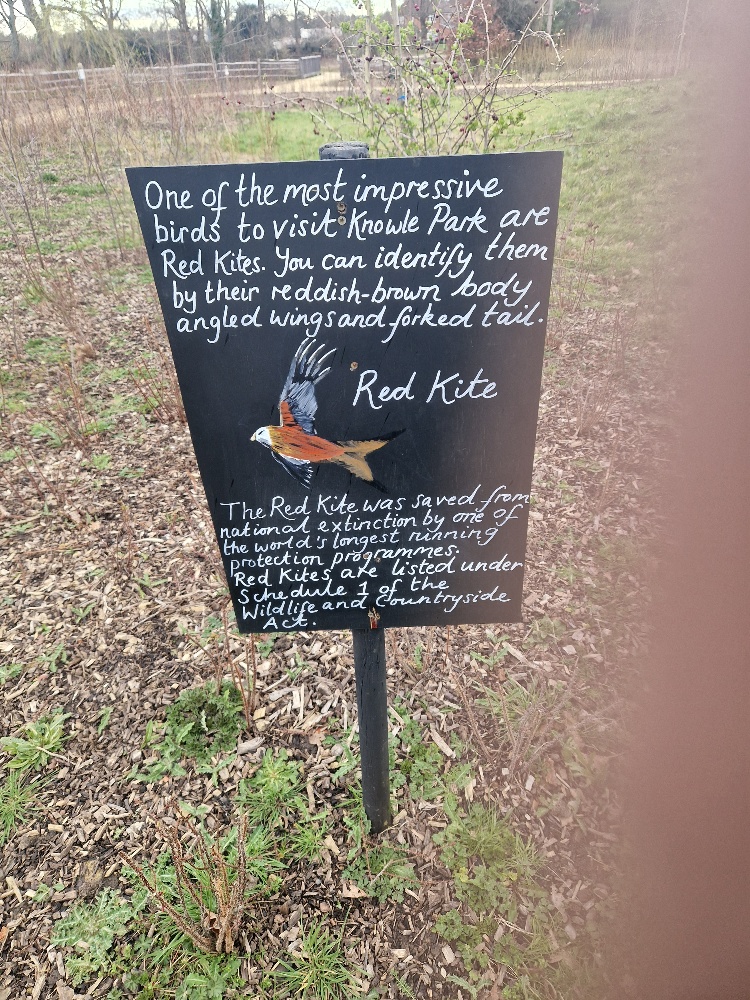 One of the most impressive
birds to visit Knowle Park are
Red Kites. You can identify them
by their reddish-brown body
angled wings and forked tail.
Red Kite
The Red Kite was saved from
national extinction by one of
the world's longest running
protection programmes.
Red Kites are listed under
Schedule 1 of the
Wildlife and Countryside
Act.